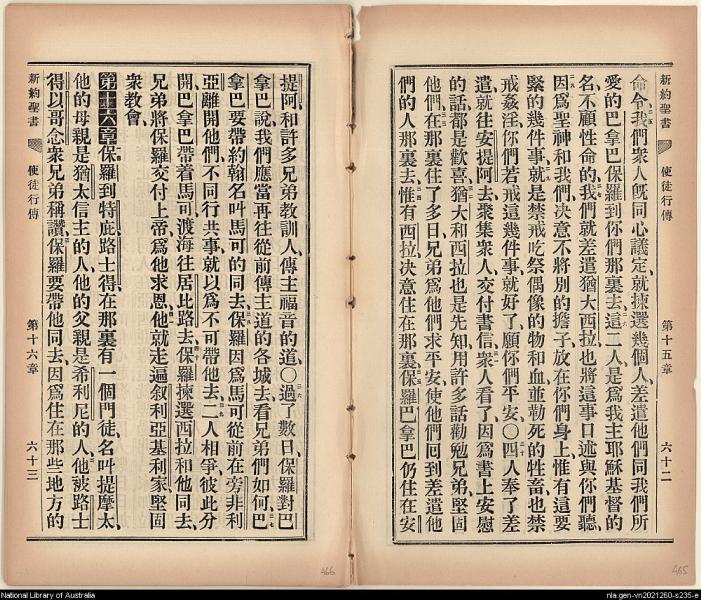 新約聖書 使徒行傳 第十五章 六十二
命令、我們衆人旣同心議定、就揀選幾個人、差遣他們同我們所
愛的巴拿巴保羅到你們那裏去、這二人、是爲我主耶穌基督的
名、不顧性命的、我們就差遣猶大西拉、也將這事口述與你們聽、
因爲聖神和我們、決意不將別的擔子放在你們身上、惟有這要
緊的幾件事、就是禁戒吃祭偶像的物、和血、並勒死的牲畜、也禁
戒姦淫、你們若戒這幾件事就好了、願你們平安、〇四人奉了差
遣、就往安提阿去、聚集衆人、交付書信、衆人看了、因爲書上安慰
的話、都是歡喜、猶大和西拉也是先知、用許多話勸勉兄弟、堅固
他們、在那裏住了多日、兄弟爲他們求平安、使他們回到差遣他
們的人那裏去、惟有西拉決意住在那裏、保羅巴拿巴仍住在安
新約聖書 使徒行傳 第十六章 六十三
提阿、和許多兄弟教訓人、傳主福音的道、〇過了數日、保羅對巴
拿巴說、我們應當再往從前傳主道的各城去、看兄弟們如何、巴
拿巴要帶約翰名叫馬可的同去、保羅因爲馬可從前在旁非利
亞離開他們、不同行共事、就以爲不可帶他去、二人相爭、彼此分
開、巴拿巴帶着馬可、渡海往居比路去、保羅揀選西拉和他同去、
兄弟將保羅交付上帝、爲他求恩、他就走遍叙利亞基利家、堅固
衆教會、
第十六章 保羅到特庇路士得、在那裏有一個門徒、名叫提摩太、
他的母親是猶太信主的人、他的父親是希利尼的人、他被路士
得以哥念衆兄弟稱讚、保羅要帶他同去、因爲住在那些地方的
466
465
National Library of Australia
nla.gen-vn2021260-s235-e